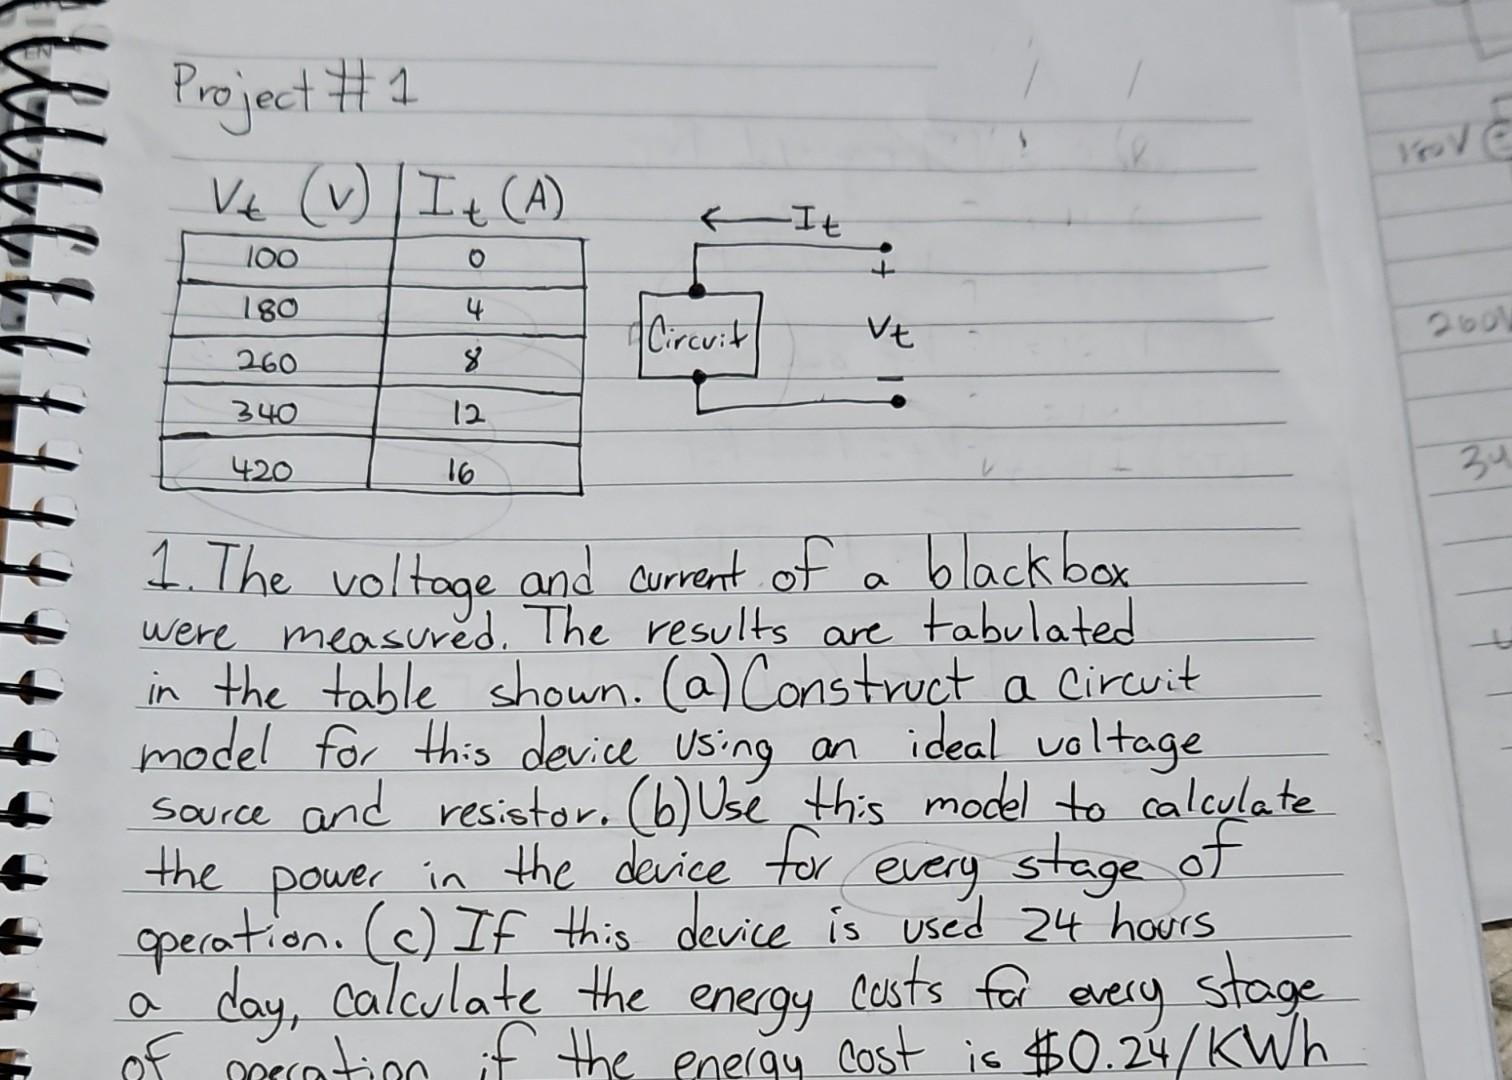 Project #1
Vt (V) It (A)
100 0
180 4
260 8
340 12
420 16
← It
+
Circuit
Vt
−
1. The voltage and current of a blackbox
were measured. The results are tabulated
in the table shown. (a) Construct a circuit
model for this device using an ideal voltage
source and resistor. (b) Use this model to calculate
the power in the device for every stage of
operation. (c) If this device is used 24 hours
a day, calculate the energy costs for every stage
of operation if the energy cost is $0.24/KWh